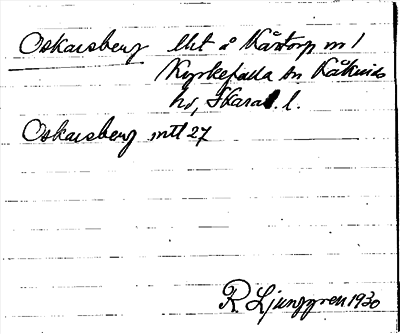 Oskarsberg lht å Kårtorp n 1
Kyrkefalla sn Kåkinds
hd, Skarab. l.
Oskarsberg mtl 27
R Ljunggren 1930